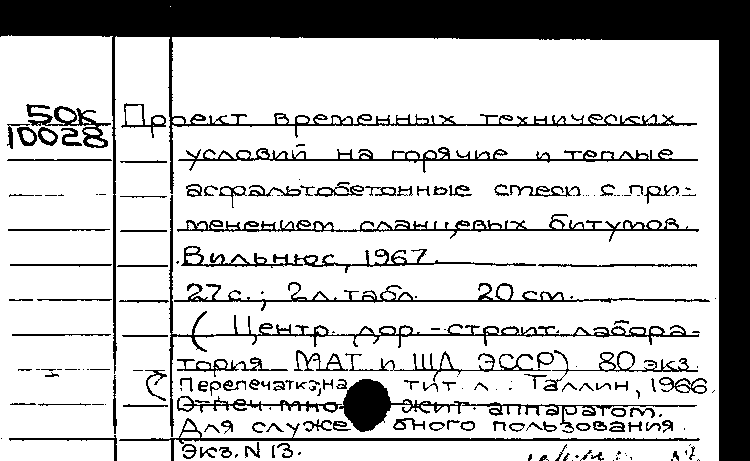 50К
10028
Проект временных технических
условий на горячие и теплые
асфальтобетонные смеси с при-
менением сланцевых битумов.
Вильнюс, 1967.
27с.; 2л.табл. 20см.
(Центр. дор.-строит. лабора-
тория МАТ и ШД ЭССР) 80 экз.
Перепечатка, на тит. л.: Таллин, 1966.
Отпеч. множит. аппаратом.
Для служебного пользования.
Экз. N 13.